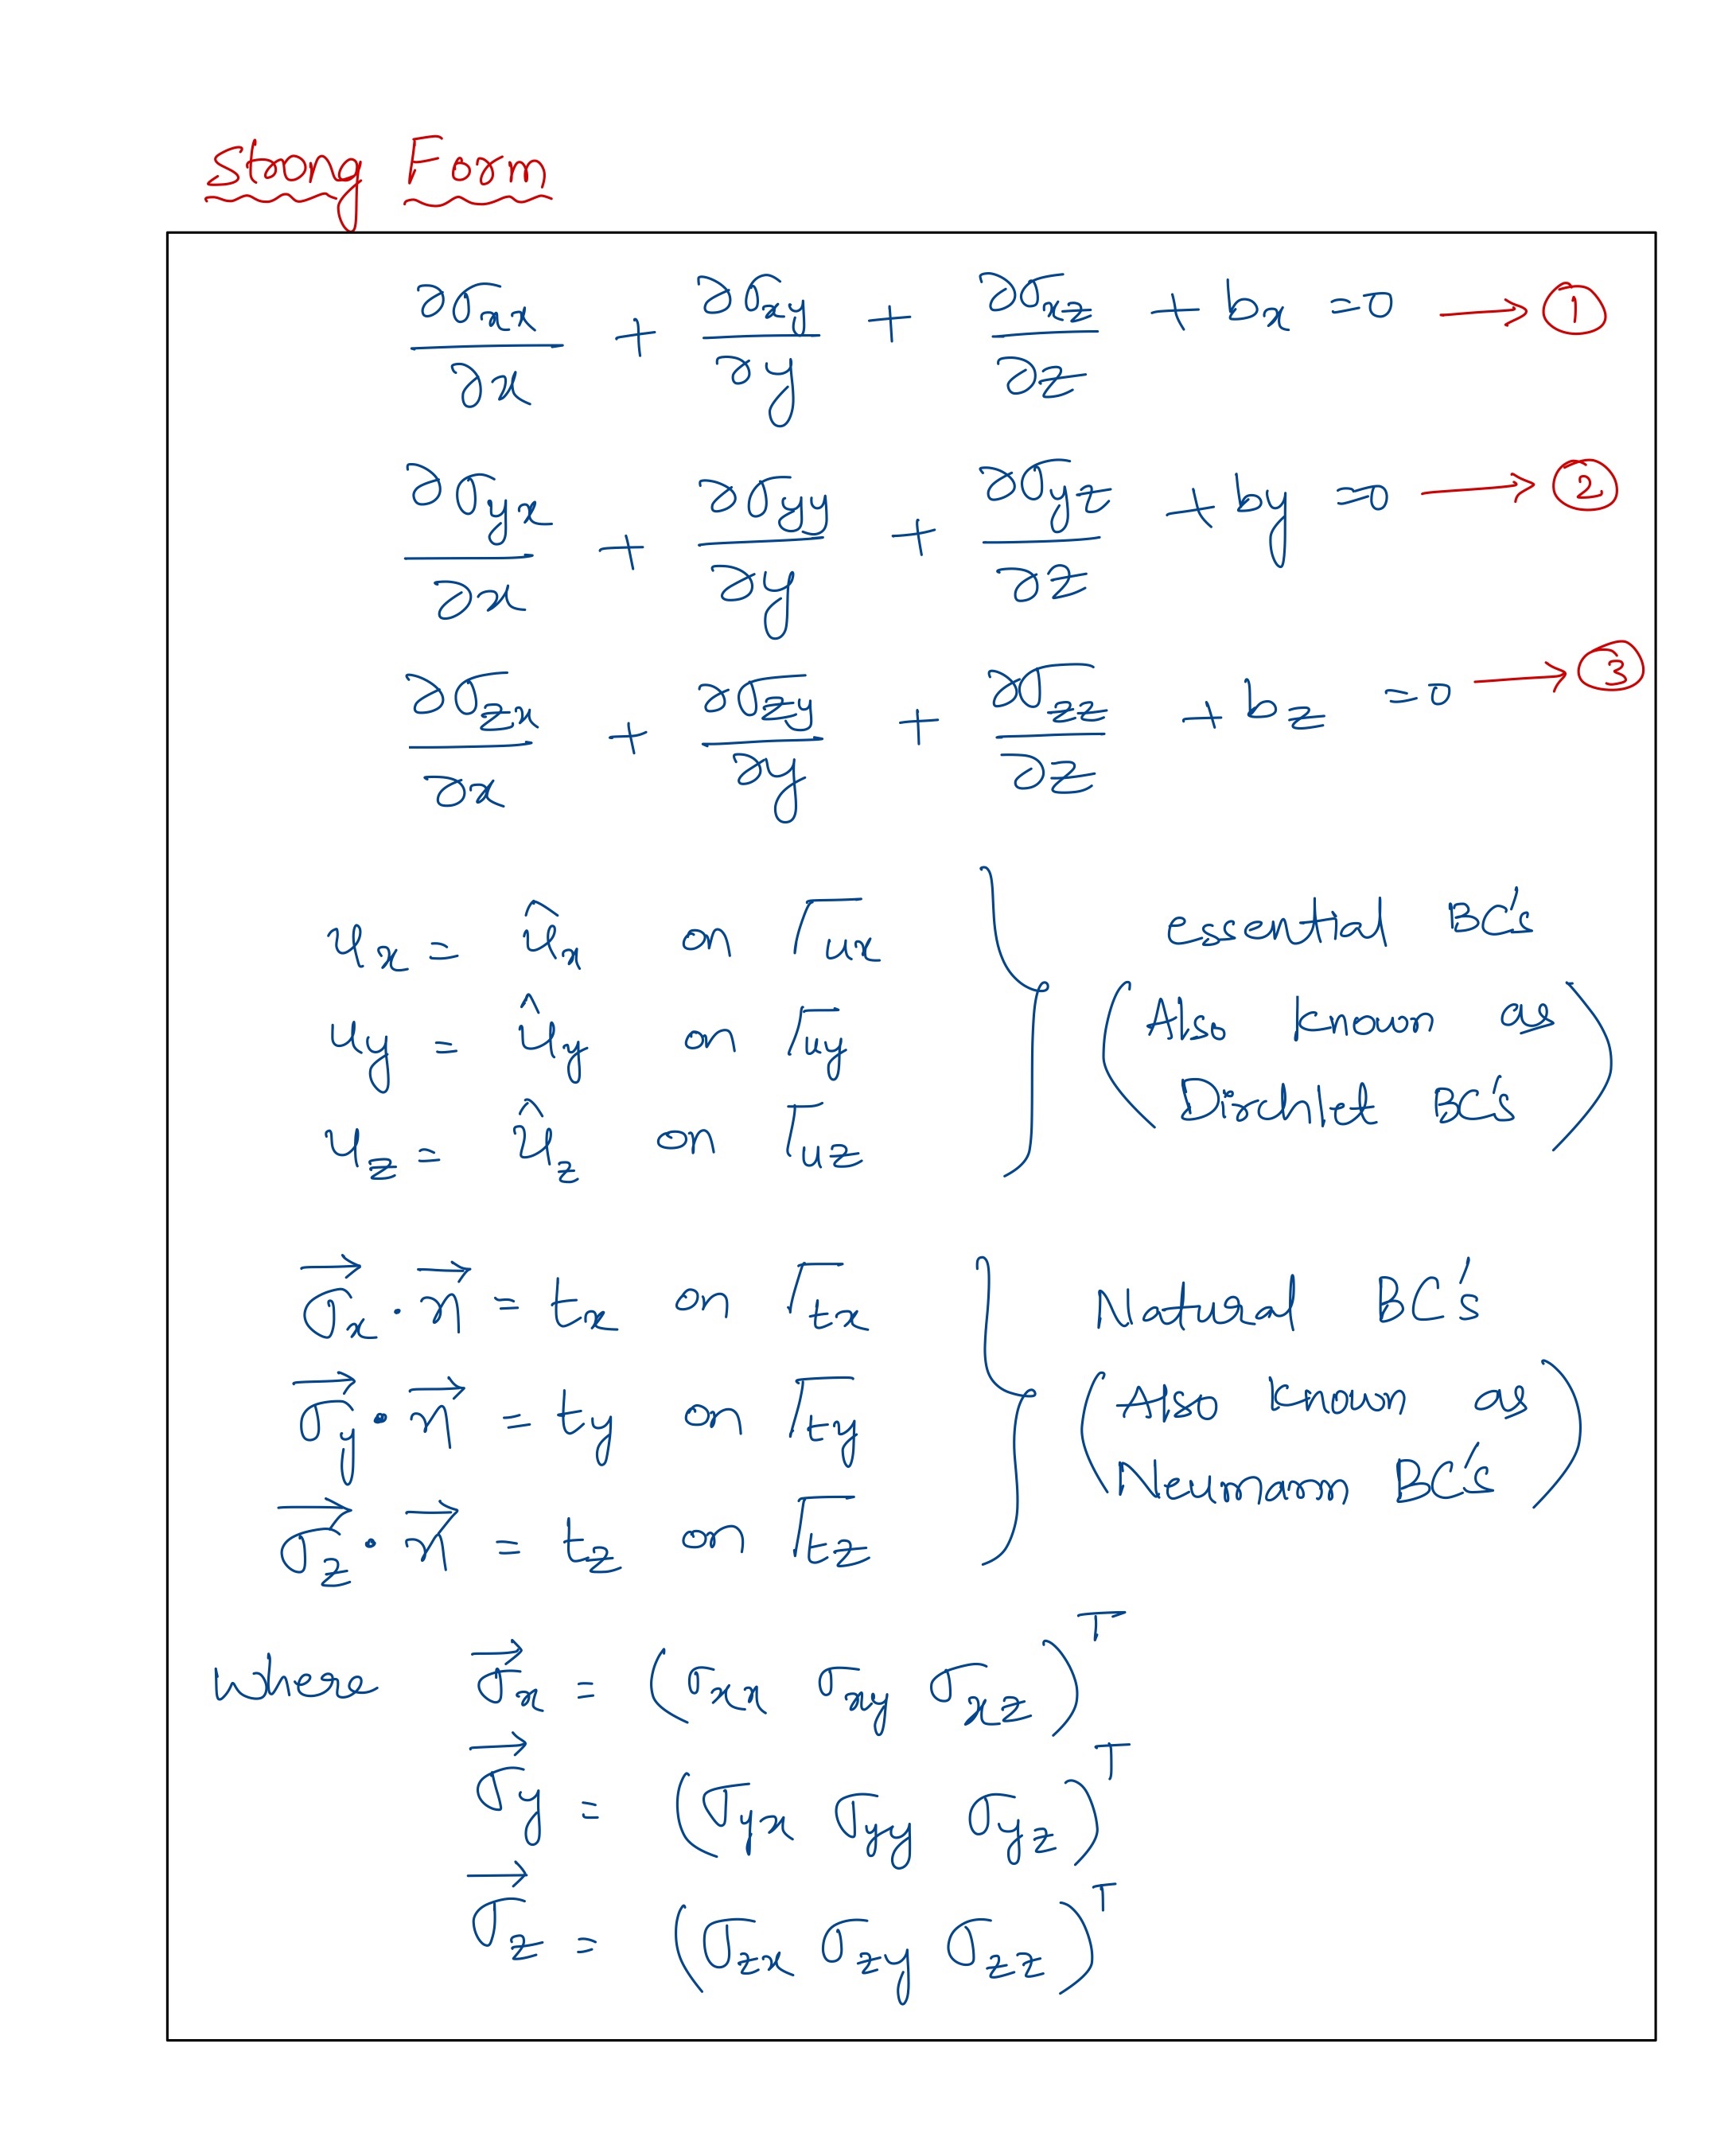 Strong Form
∂σxx/∂x + ∂σxy/∂y + ∂σxz/∂z + bx = 0 → ①
∂σyx/∂x + ∂σyy/∂y + ∂σyz/∂z + by = 0 → ②
∂σzx/∂x + ∂σzy/∂y + ∂σzz/∂z + bz = 0 → ③
ux = ûx on Γux
uy = ûy on Γuy
uz = ûz on Γuz
essential BC's
(Also known as
Dirchlet BC's)
σ⃗x · n⃗ = tx on Γtx
σ⃗y · n⃗ = ty on Γty
σ⃗z · n⃗ = tz on Γtz
Natural BC's
(Also known as
Neumann BC's)
where σ⃗x = (σxx σxy σxz)ᵀ
σ⃗y = (σyx σyy σyz)ᵀ
σ⃗z = (σzx σzy σzz)ᵀ